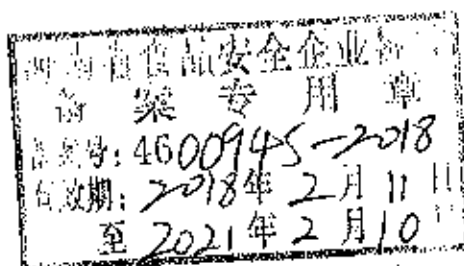 海南省食品安全企业标准
备案专用章
备案号：460094S-2018
有效期：2018年2月11日
至2021年2月10日